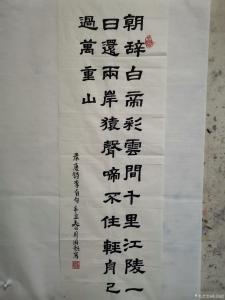 朝辞白帝彩雲間千里江陵一
日還兩岸猿聲啼不住輕舟已
過萬重山